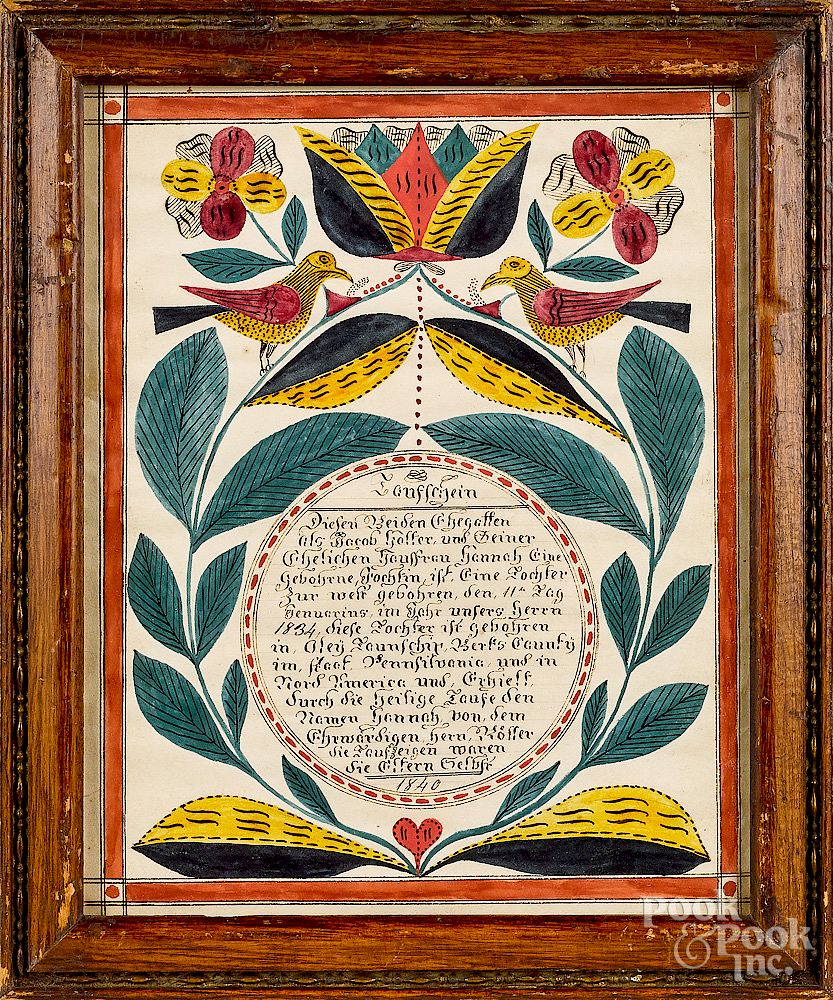 Taufschein
Diesen Beiden Ehegatten
als Jacob Hölter, und Seiner
Ehelichen Haussfrau Hannah Eine
Gebohrne, ist Eine Tochter
Zur welt gebohren, den, 11ᵗᵉ Tag
Jenuarius, im Jahr unsers Herrn
1834, diese Tochter ist gebohren
in, Oley, Taunschip, Berks Caunty
im, staat, Pennsilvania, und in
Nord America und, Erhielt
durch die Heilige Taufe den
Namen Hannah, von, dem
Ehrwärdigen, Hern,
die Taufzeigen waren
die Eltern Selbst
1840
Pook
& Pook
Inc.